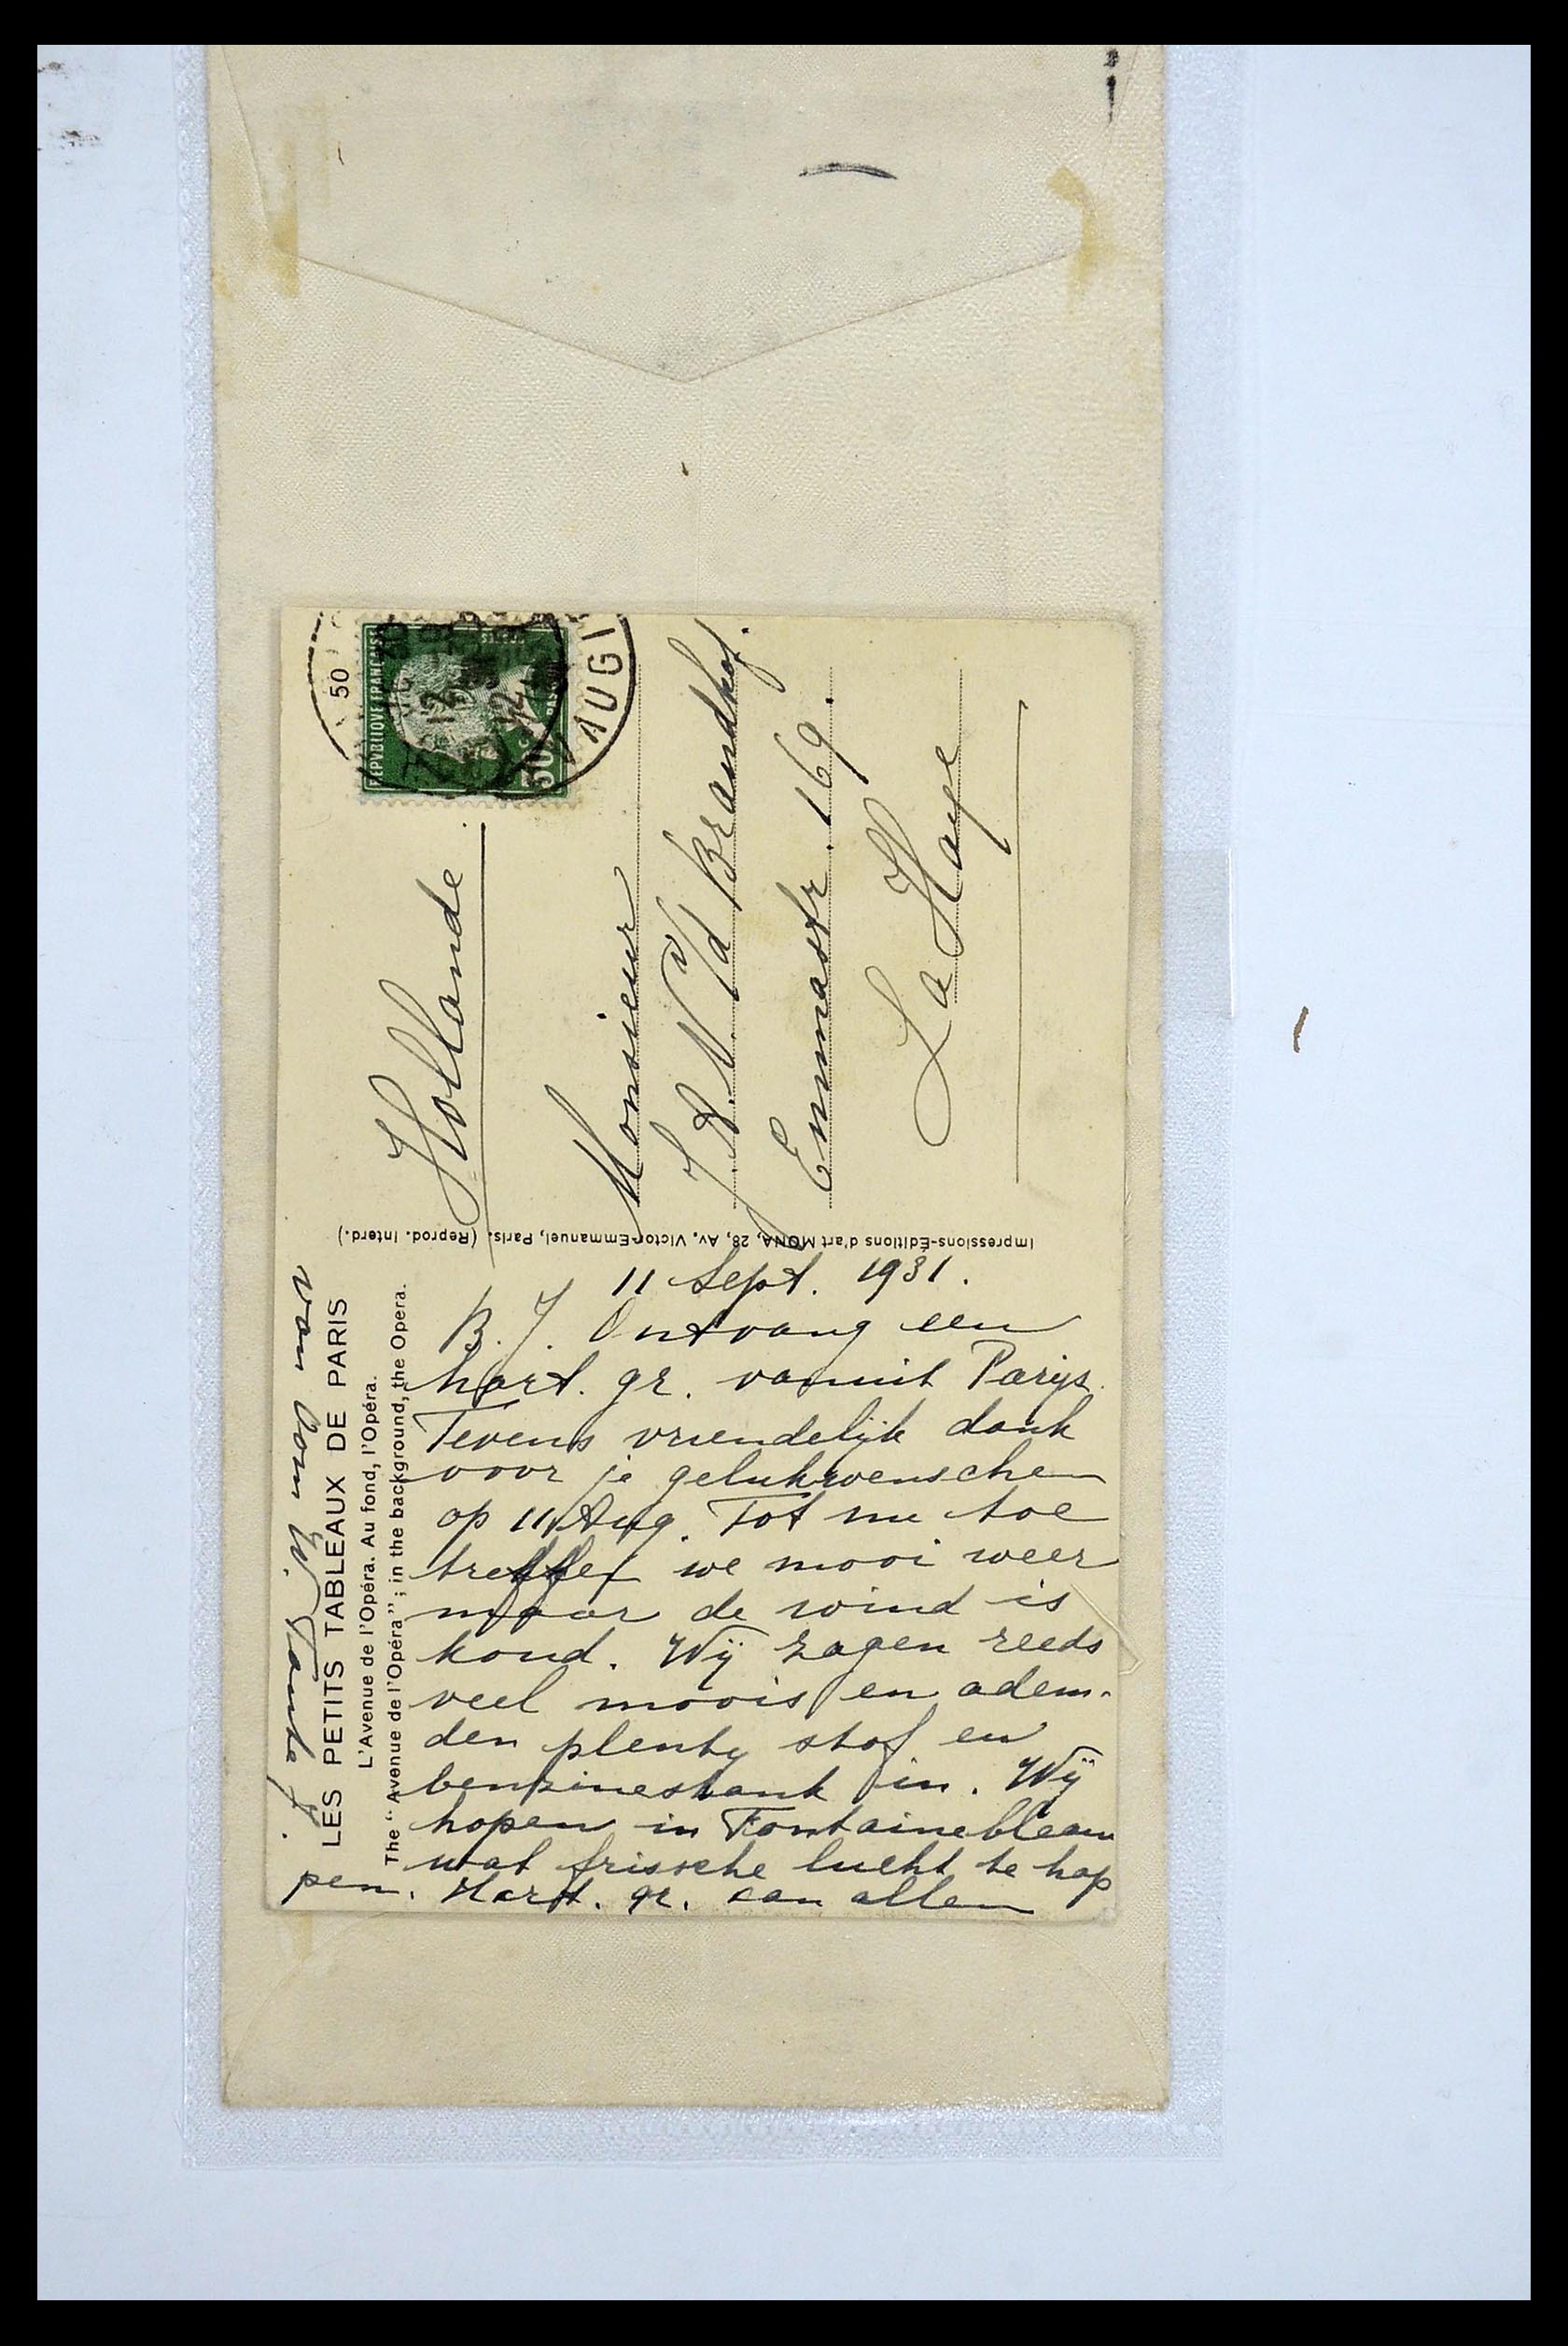 11 Sept. 1931.
B. J. Ontvang een
hart. gr. vanuit Parijs.
Tevens vriendelijk dank
voor je gelukwenschen
op 11 Aug. Tot nu toe
treffen we mooi weer
maar de wind is
koud. Wij zagen reeds
veel moois en adem-
den plenty stof en
benzinestank in. Wij
hopen in Fontainebleau
wat frissche lucht te hap
pen. Hart. gr. aan allen
van Oom W. Tante J.
LES PETITS TABLEAUX DE PARIS
L'Avenue de l'Opéra. Au fond, l'Opéra.
The "Avenue de l'Opéra"; in the background, the Opera.
Impressions-Éditions d'art MONA, 28, Av. Victor-Emmanuel, Paris. (Reprod. Interd.)
Hollande
Monsieur
J. A. N. v/d Brandhof.
Emmastr. 169.
La Haye
REPVBLIQVE FRANÇAISE
30c
50
AUGI
12